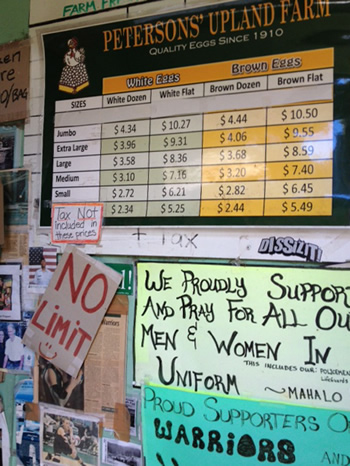 FARM FR
PETERSONS' UPLAND FARM
QUALITY EGGS SINCE 1910
White Eggs Brown Eggs
SIZES White Dozen White Flat Brown Dozen Brown Flat
Jumbo $ 4.34 $ 10.27 $ 4.44 $ 10.50
Extra Large $ 3.96 $ 9.31 $ 4.06 $ 9.55
Large $ 3.58 $ 8.36 $ 3.68 $ 8.59
Medium $ 3.10 $ 7.16 $ 3.20 $ 7.40
Small $ 2.72 $ 6.21 $ 2.82 $ 6.45
$ 2.34 $ 5.25 $ 2.44 $ 5.49
Tax Not
Included in
these prices
+ Tax
NO
LIMIT
WE PROUDLY SUPPOR
AND PRAY FOR ALL OU
MEN & WOMEN IN
THIS INCLUDES OUR: POLICEMEN
UNIFORM ~MAHALO
PROUD SUPPORTERS O
WARRIORS AND